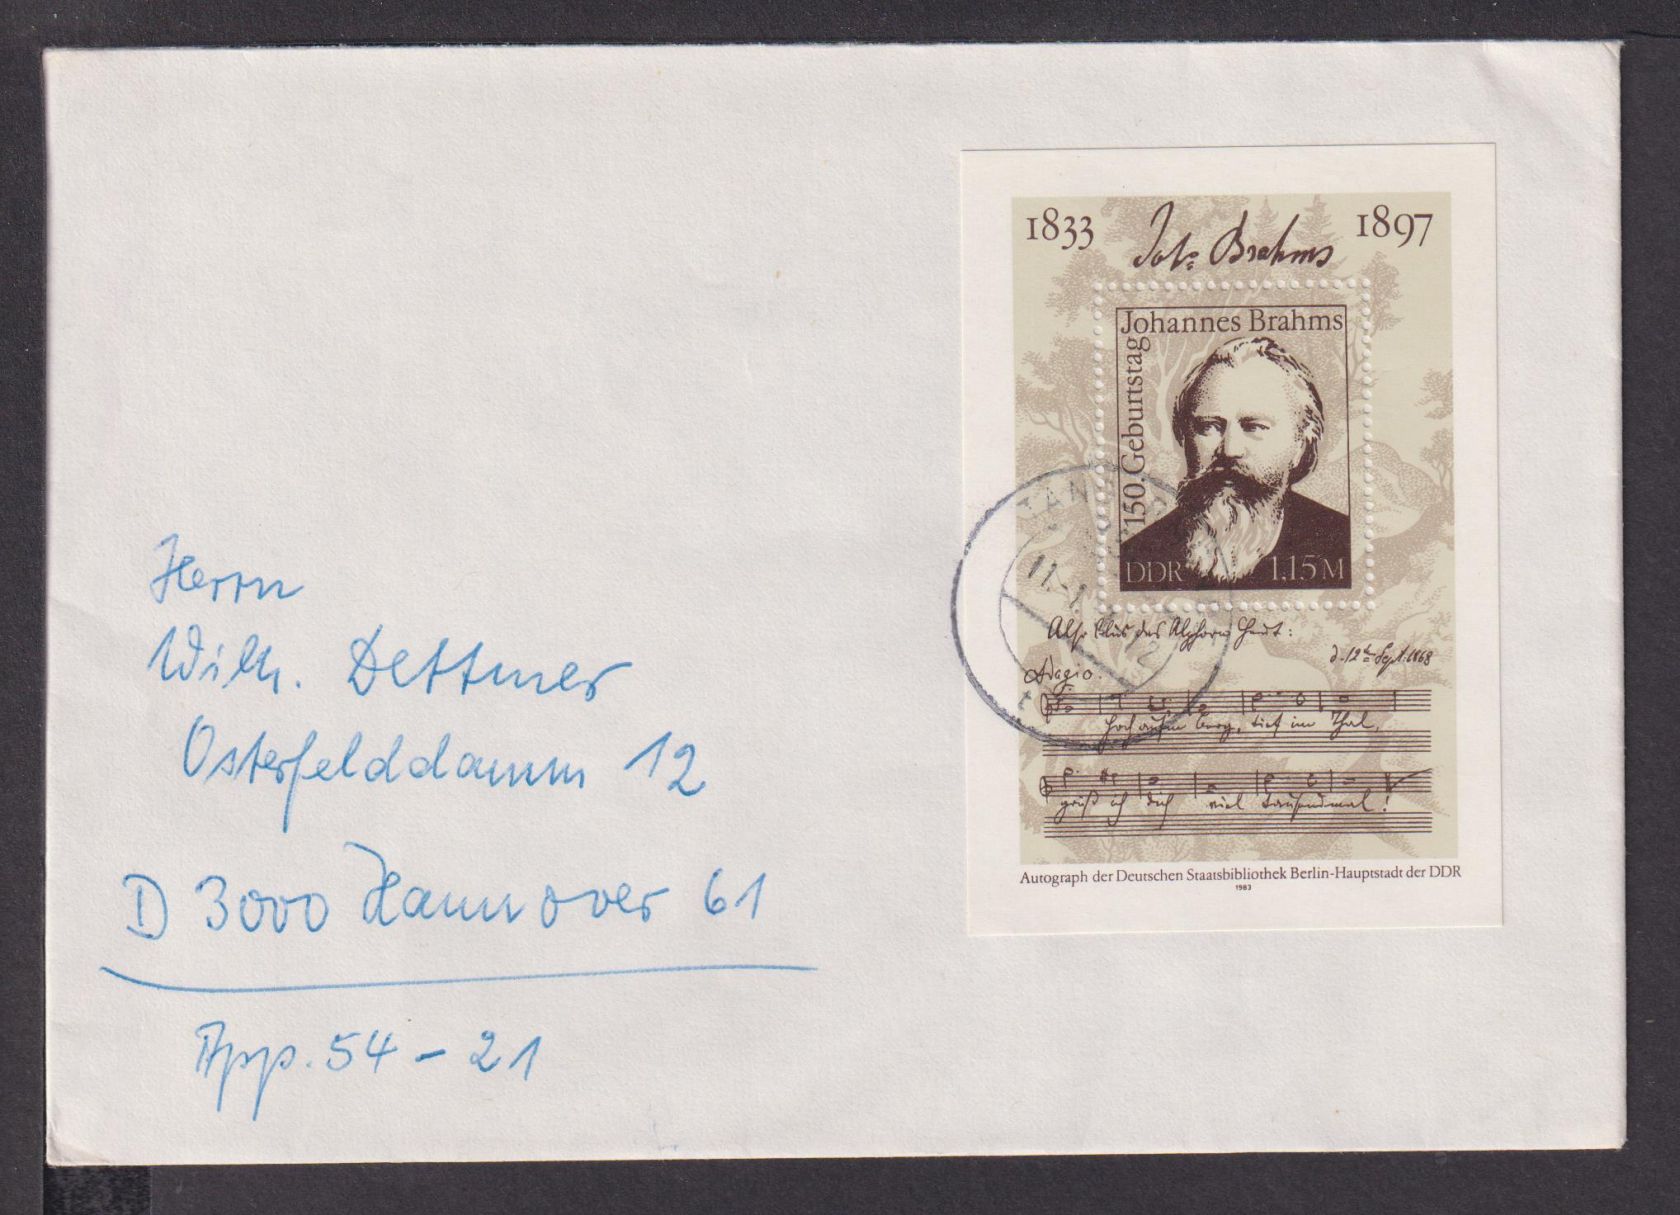 Herrn
Wilh. Dettmer
Osterfelddamm 12
D 3000 Hannover 61
App. 54 - 21
1833 1897
Joh. Brahms
Johannes Brahms
150. Geburtstag
DDR 1,15 M
Also blus das Alphorn heut:
d. 12t Sept. 1868
Adagio.
Hoch auf'm Berg, tief im Thal,
grüß ich dich viel tausendmal!
Autograph der Deutschen Staatsbibliothek Berlin-Hauptstadt der DDR
1983
11.-1.